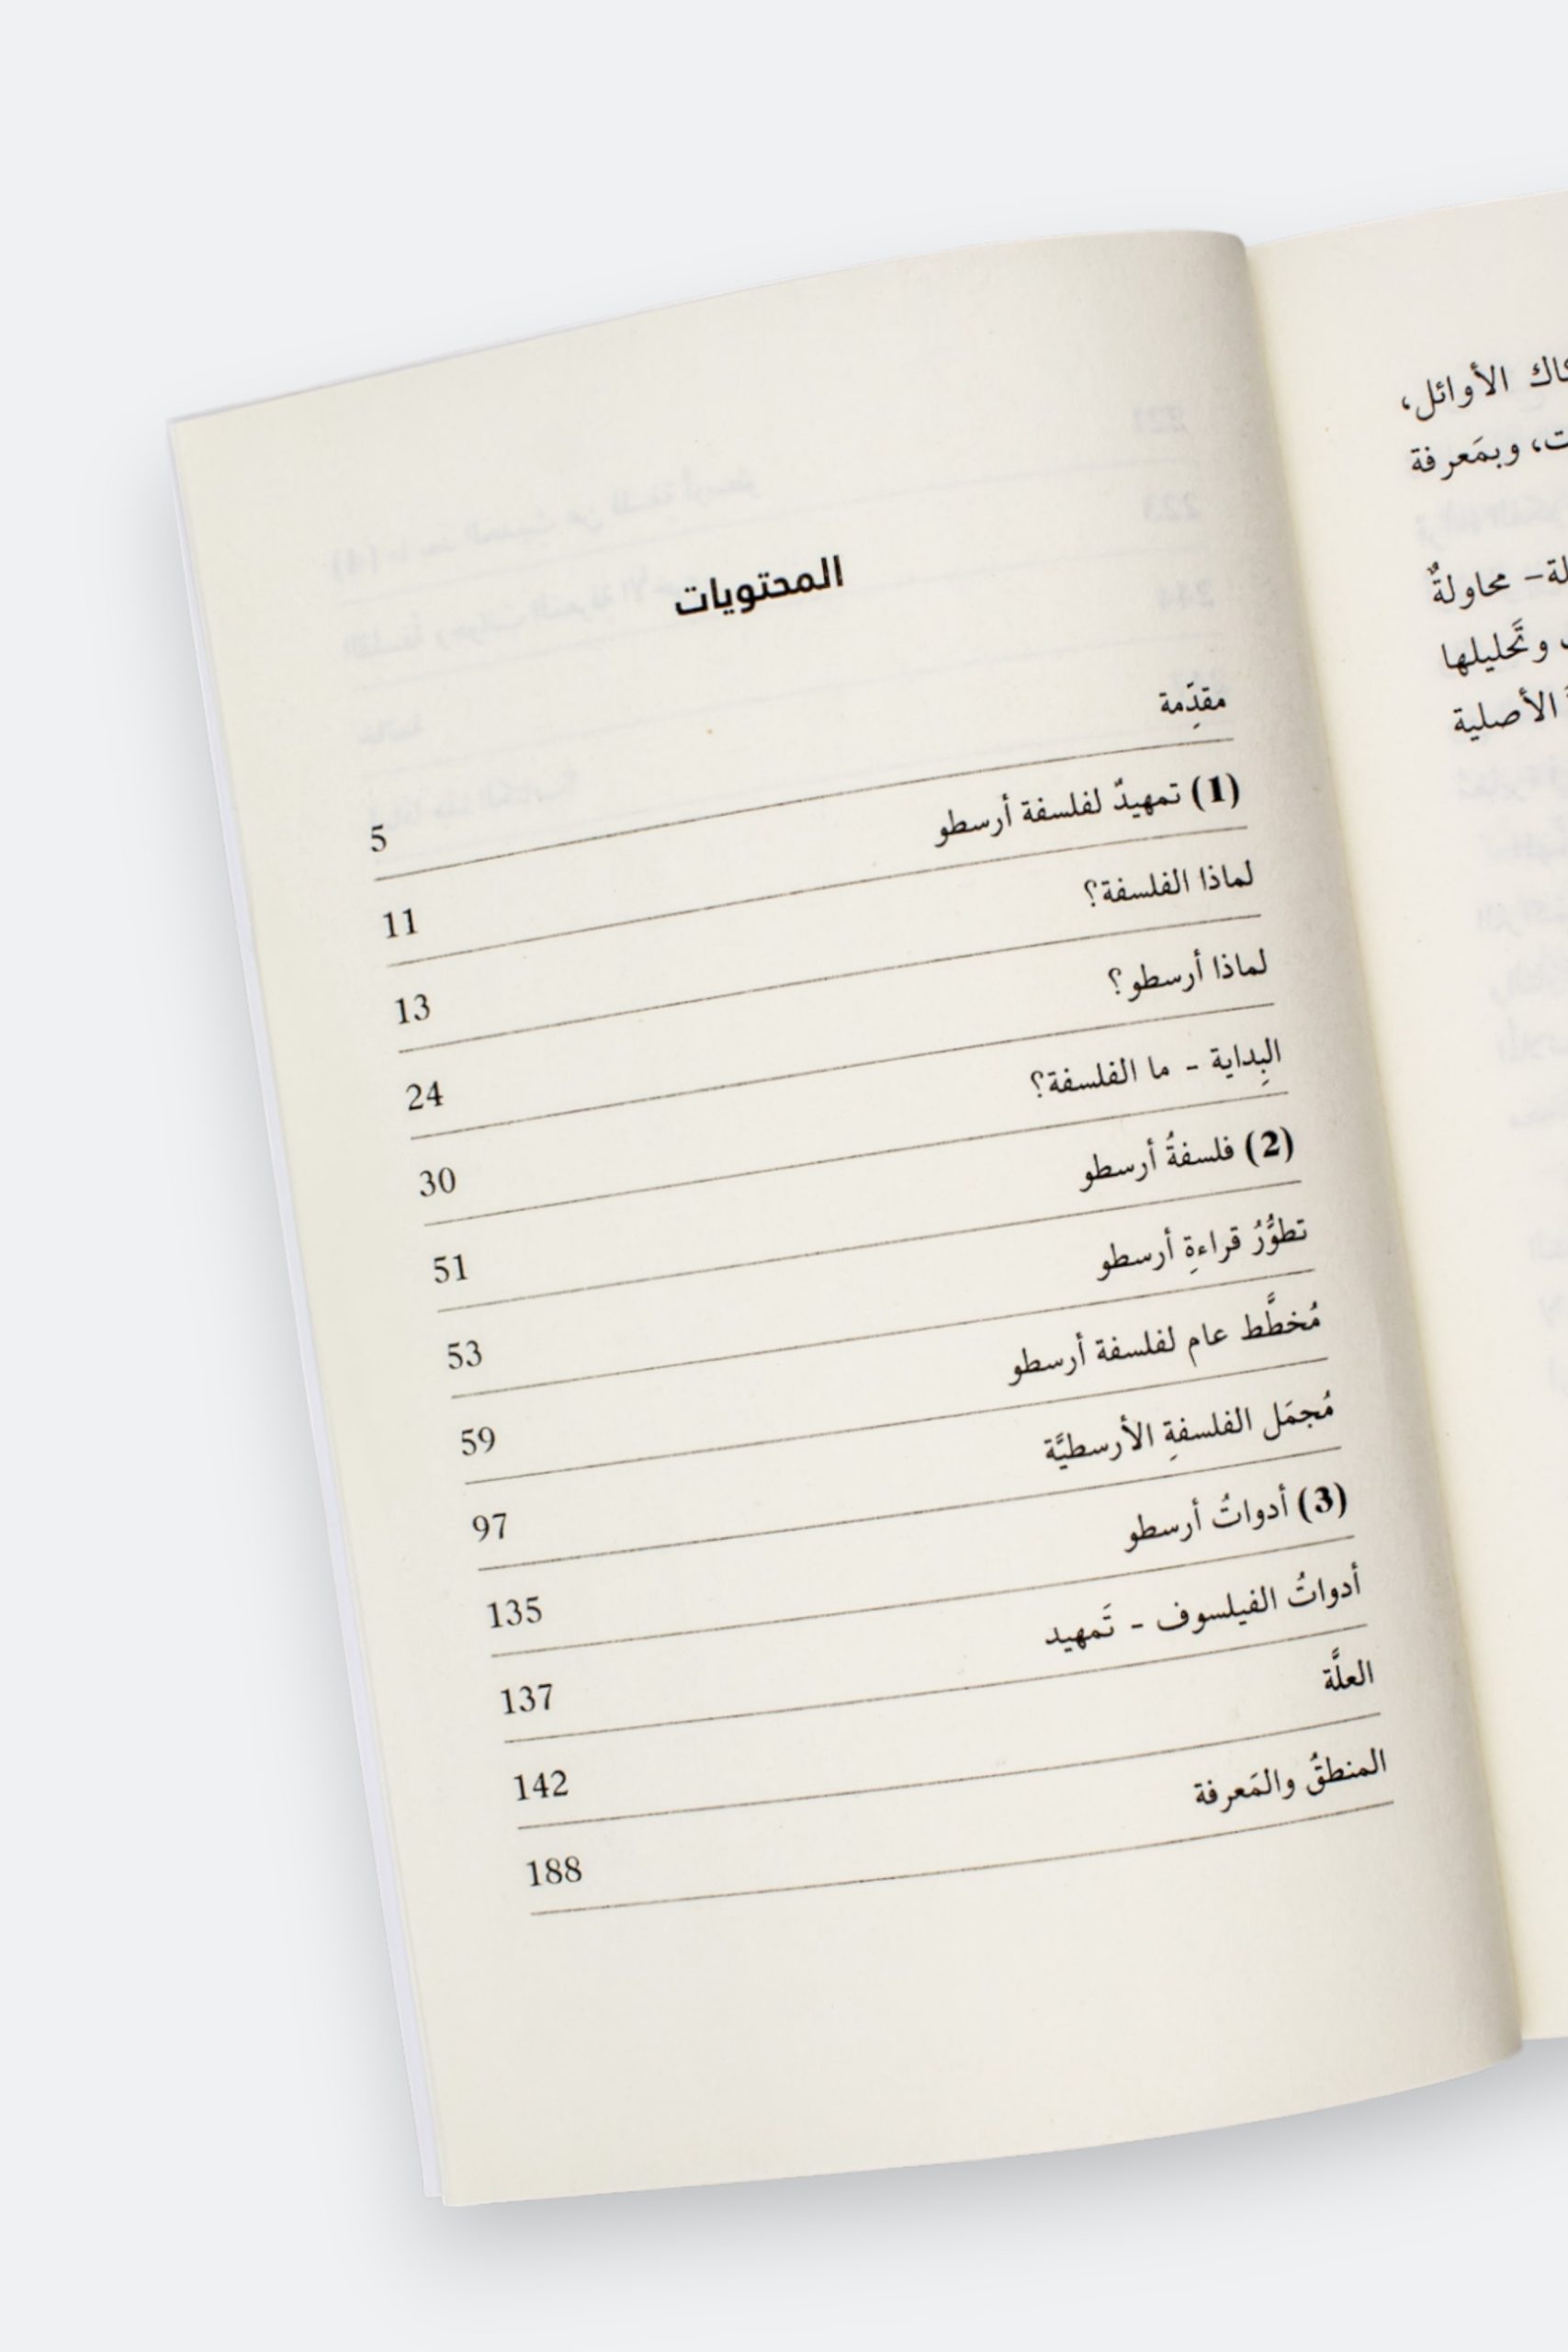 كاك الأوائل،
ت، وبمَعرفة
لة- محاولةٌ
وتَحليلها
الأصلية
المحتويات
مقدِّمة 5
(1) تمهيدٌ لفلسفة أرسطو 11
لماذا الفلسفة؟ 13
لماذا أرسطو؟ 24
البِداية - ما الفلسفة؟ 30
(2) فلسفةُ أرسطو 51
تطوُّرُ قراءةِ أرسطو 53
مُخطَّط عام لفلسفة أرسطو 59
مُجمَل الفلسفةِ الأرسطيَّة 97
(3) أدواتُ أرسطو 135
أدواتُ الفيلسوف - تَمهيد 137
العلَّة 142
المنطقُ والمَعرفة 188